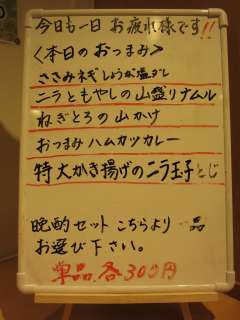 今日も一日 お疲れ様です!!
<本日のおつまみ>
ささみネギしょうが塩ダレ
ニラともやしの山盛りナムル
ねぎとろの山かけ
おつまみハムカツカレー
特大かき揚げのニラ玉子とじ
晩酌セット こちらより一品
お選び下さい。
単品 各300円